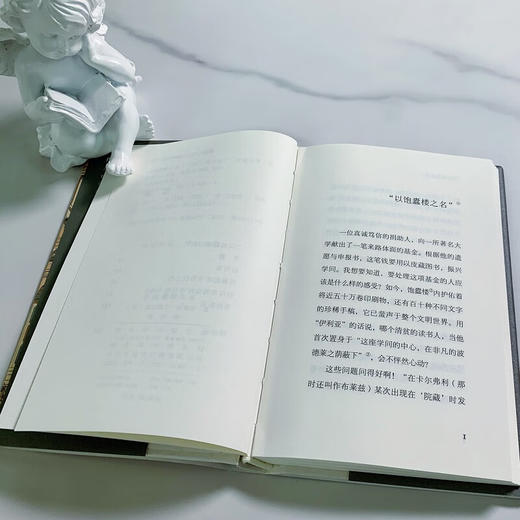 “以饱蠹楼之名”①
一位真诚笃信的捐助人，向一所著名大
学献出了一笔来路体面的基金。根据他的遗
愿与申报书，这笔钱要用以庋藏图书，振兴
学问。我想要知道，要处理这项基金的人应
该是什么样的感受？如今，饱蠹楼
内护佑着
将近五十万卷印刷物，还有百十种不同文字
的珍稀手稿，它已蜚声于整个文明世界。用
“伊利亚”的话说，哪个清贫的读书人，当他
首次置身于“这座学问的中心，在非凡的波
德莱之荫蔽下”②，会不怦然心动？
这些问题问得好啊！“在卡尔弗利（那
时还叫作布莱兹）某次出现在‘院藏’时发
I